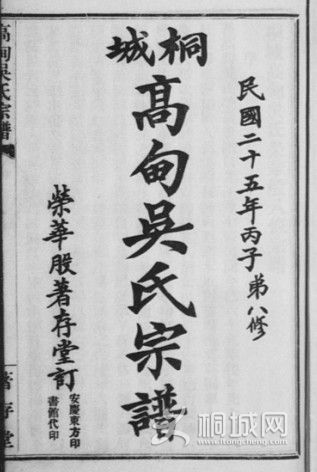 民國二十五年丙子弟八修
城桐
高甸吳氏宗譜
榮華股著存堂訂
安慶東方印
書館代印
高甸吳氏宗譜
著存堂
桐城网
www.itongcheng.com